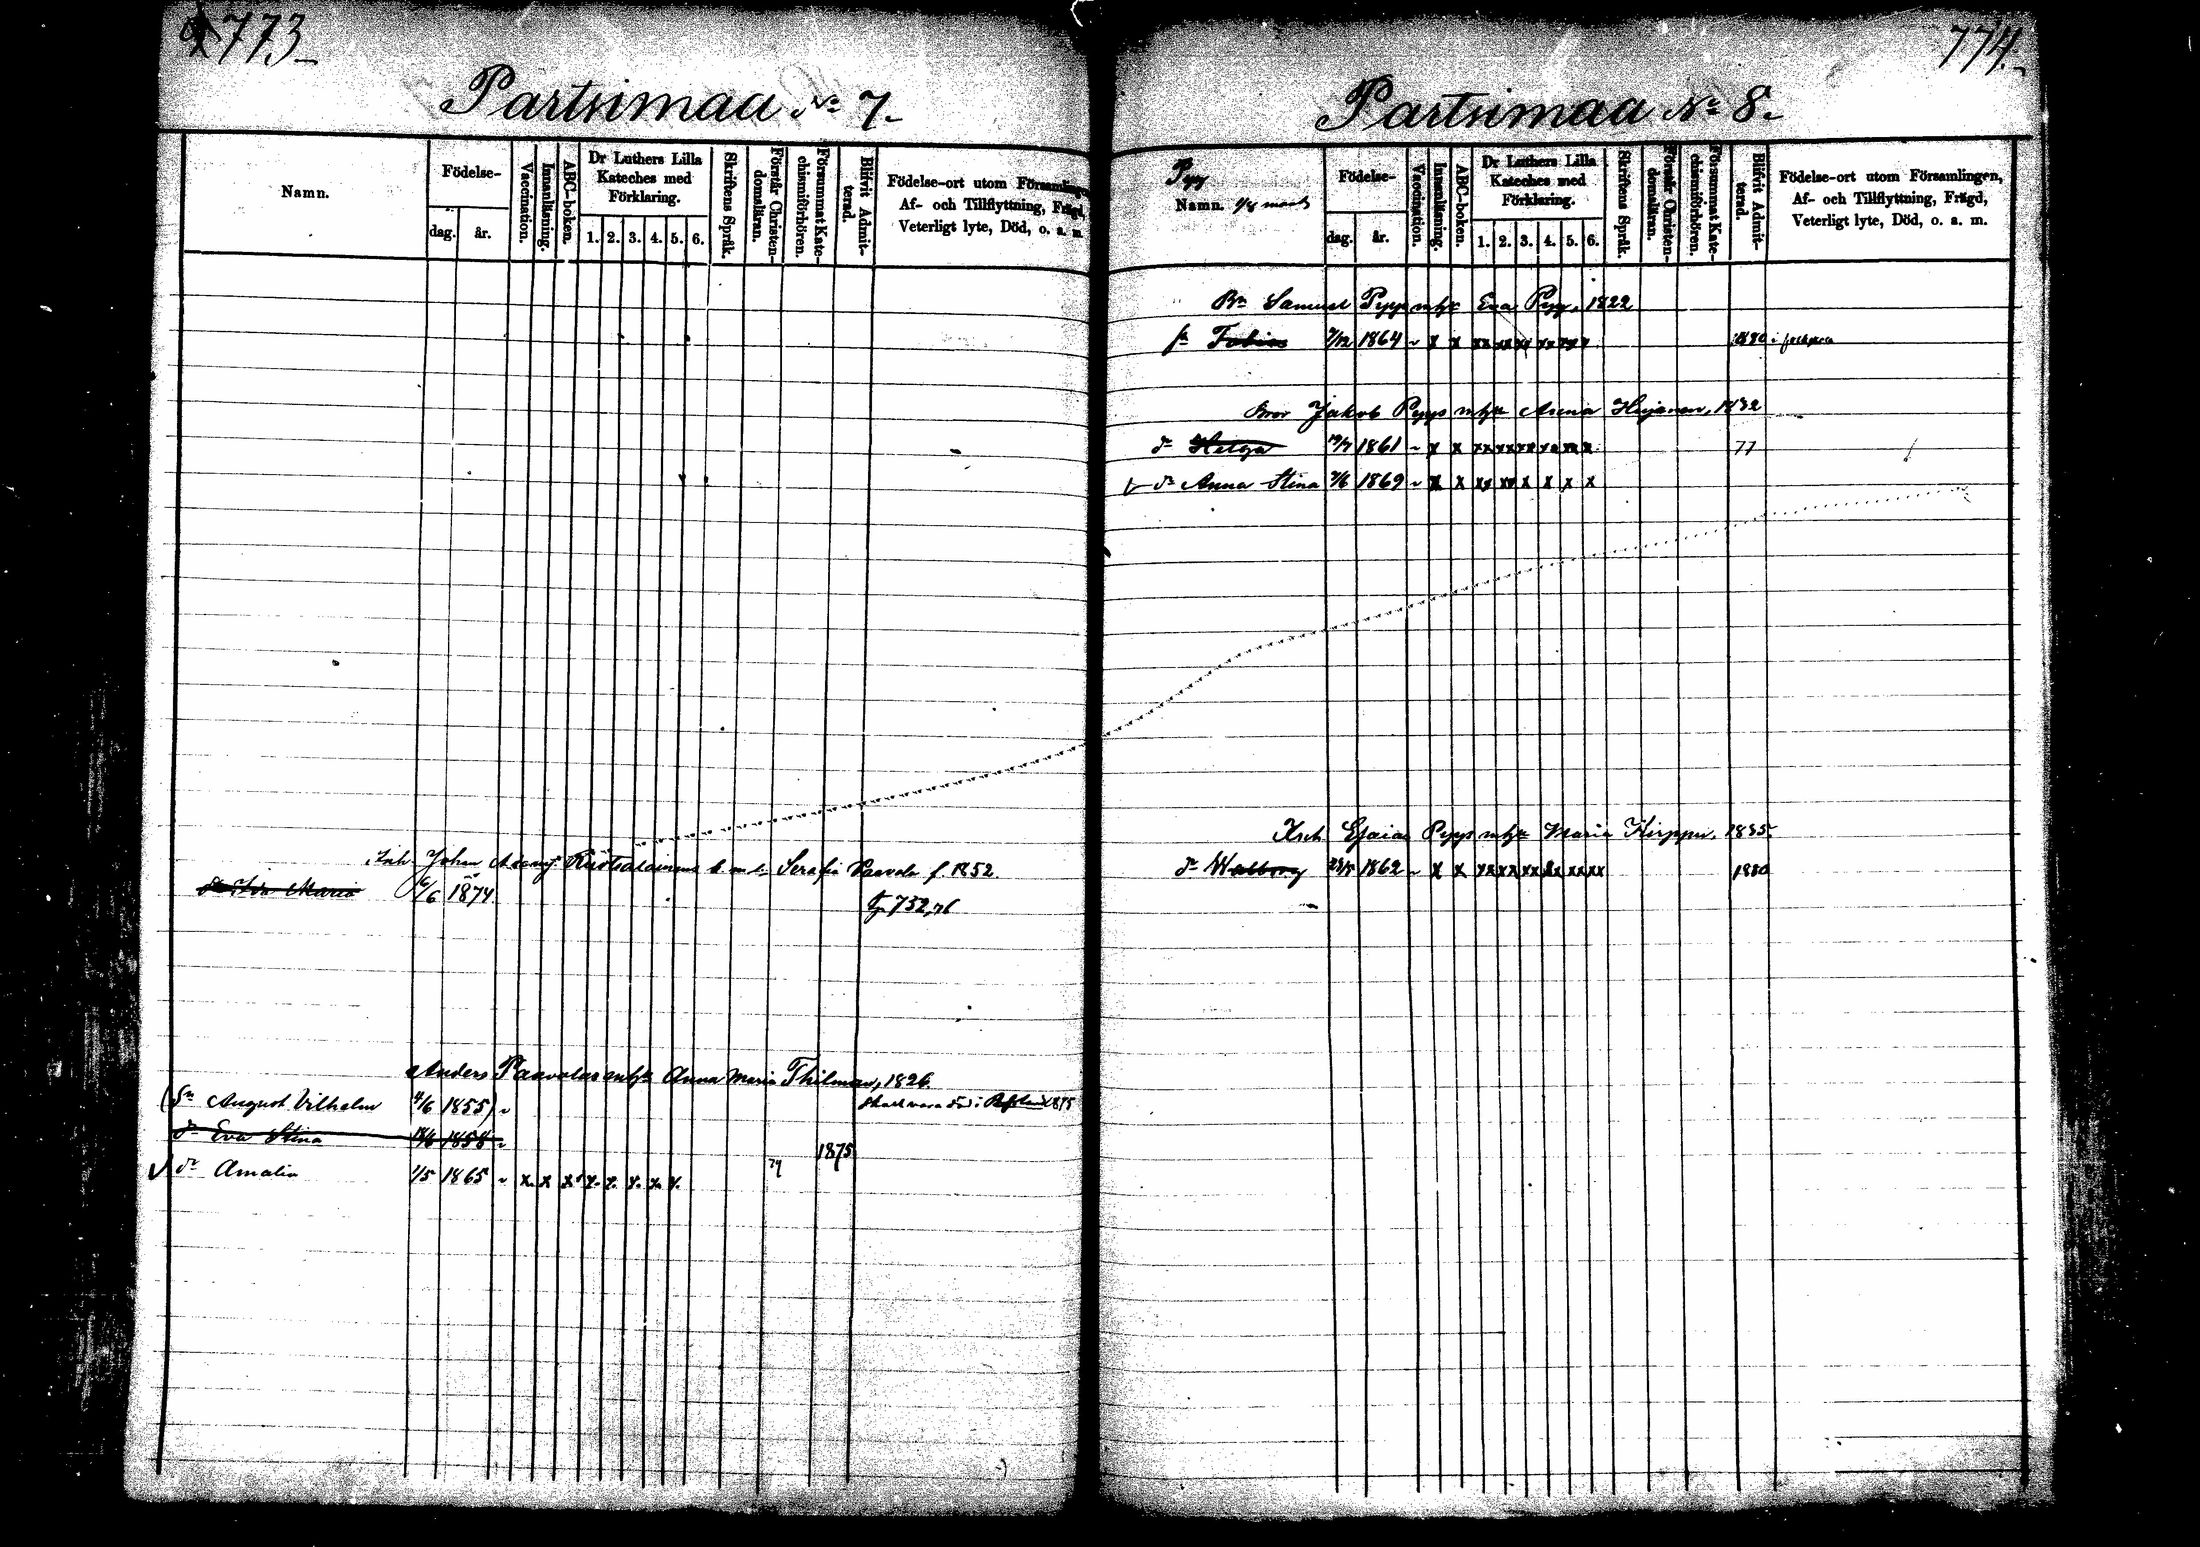 773
Partsimaa No 7.
Namn.
Födelse-
dag.
år.
Vaccination.
Innanläsning.
ABC-boken.
Dr Luthers Lilla
Kateches med
Förklaring.
1. 2. 3. 4. 5. 6.
Skriftens Språk.
Förstår Christen-
domsläran.
Försummat Kate-
chismiförhören.
Blifvit Admit-
terad.
Födelse-ort utom Församlingen,
Af- och Tillflyttning, Frägd,
Veterligt lyte, Död, o. a. m.
Inh. John Ruotsalainens Serafia Paavola f. 1852.
Maria 6/6 1874.
752, 76
Anders Paavolas Anna Maria Thilman, 1826.
(Sn August Vilhelm 4/6 1855) 1875
dr Eva Stina 18/6 1858 1875
dr Amalia 1/5 1865 x x x x x x x x x
774.
Partsimaa No 8.
Pyy
Namn.
Födelse-
dag.
år.
Vaccination.
Innanläsning.
ABC-boken.
Dr Luthers Lilla
Kateches med
Förklaring.
1. 2. 3. 4. 5. 6.
Skriftens Språk.
Förstår Christen-
domsläran.
Försummat Kate-
chismiförhören.
Blifvit Admit-
terad.
Födelse-ort utom Församlingen,
Af- och Tillflyttning, Frägd,
Veterligt lyte, Död, o. a. m.
Bn Samuel Pyys Eva Pyy, 1822
Tobias 1864 x x xx xx xx xx xx x 1880
Bror Jakob Pyys 1832
dr Helga 19/7 1861 x x xx xx xx xx xx x 77
dr Anna Stina 1869 x x xx xx x x x x
Esaias Pyys Maria Kirppu, 1835
dr Walborg 1862 x x xx xx xx xx xx xx 1880